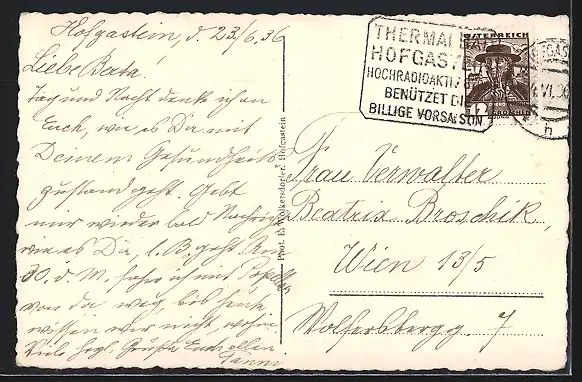 Hofgastein, d. 23/6.36
Liebe Beata!
Tag und Nacht denk ich an
Euch, wie es Dir mit
Deinem Gesundheits-
zustand geht. Gebt
mir wieder bald Nachricht
wie es Dir, l. B. geht. Am
30. d. M. fahre ich mit
von da weg, bis heute
wissen wir nicht, wohin.
Viele herzl. Grüße Euch allen
Tanni
Phot. E. Wolkersdorfer, Hofgastein
THERMALBAD
HOFGASTEIN
HOCHRADIOAKTIV
BENÜTZET DIE
BILLIGE VORSAISON
ÖSTERREICH
12
GROSCHEN
VI. 36
h
Frau Verwalter
Beatrix Broschik,
Wien 13/5
Wolfersbergg. 7